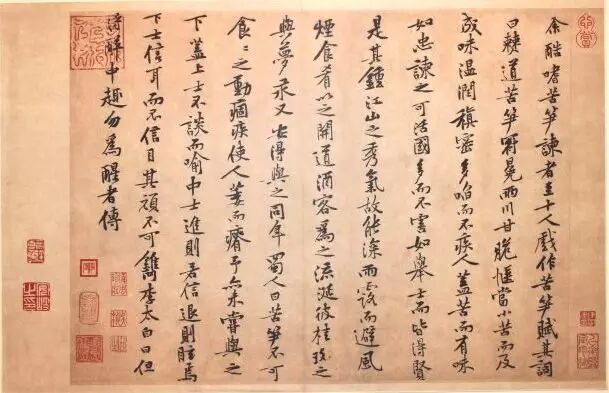 余酷嗜苦筍諫者至十人戲作苦筍賦其詞
曰僰道苦筍冠冕兩川甘脆愜當小苦而及
成味溫潤縝密多啗而不疾人蓋苦而有味
如忠諫之可活國多而不害如舉士而皆得賢
是其鍾江山之秀氣故能深雨露而避風
煙食肴以之開道酒客為之流涎彼桂玫之
與夢永又安得與之同年蜀人曰苦筍不可
食〻之動痼疾使人萎而瘠予亦未嘗與之
下蓋上士不談而喻中士進則若信退則眩焉
下士信耳而不信目其頑不可鐫李太白曰但
得醉中趣勿為醒者傳